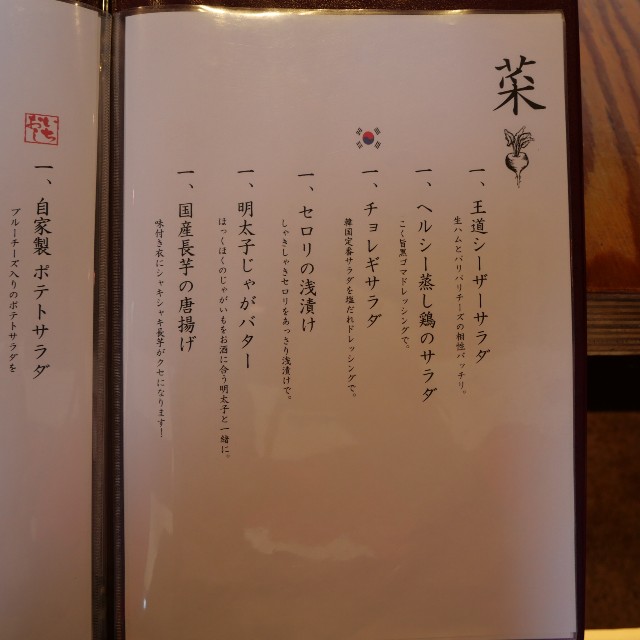 菜
一、王道シーザーサラダ
生ハムとパリパリチーズの相性バッチリ。
一、ヘルシー蒸し鶏のサラダ
こく旨黒ゴマドレッシングで。
一、チョレギサラダ
韓国定番サラダを塩だれドレッシングで。
一、セロリの浅漬け
しゃきしゃきセロリをあっさり浅漬けで。
一、明太子じゃがバター
ほっくほくのじゃがいもをお酒に合う明太子と一緒に。
一、国産長芋の唐揚げ
味付き衣にシャキシャキ長芋がクセになります！
一、自家製 ポテトサラダ
ブルーチーズ入りのポテトサラダを